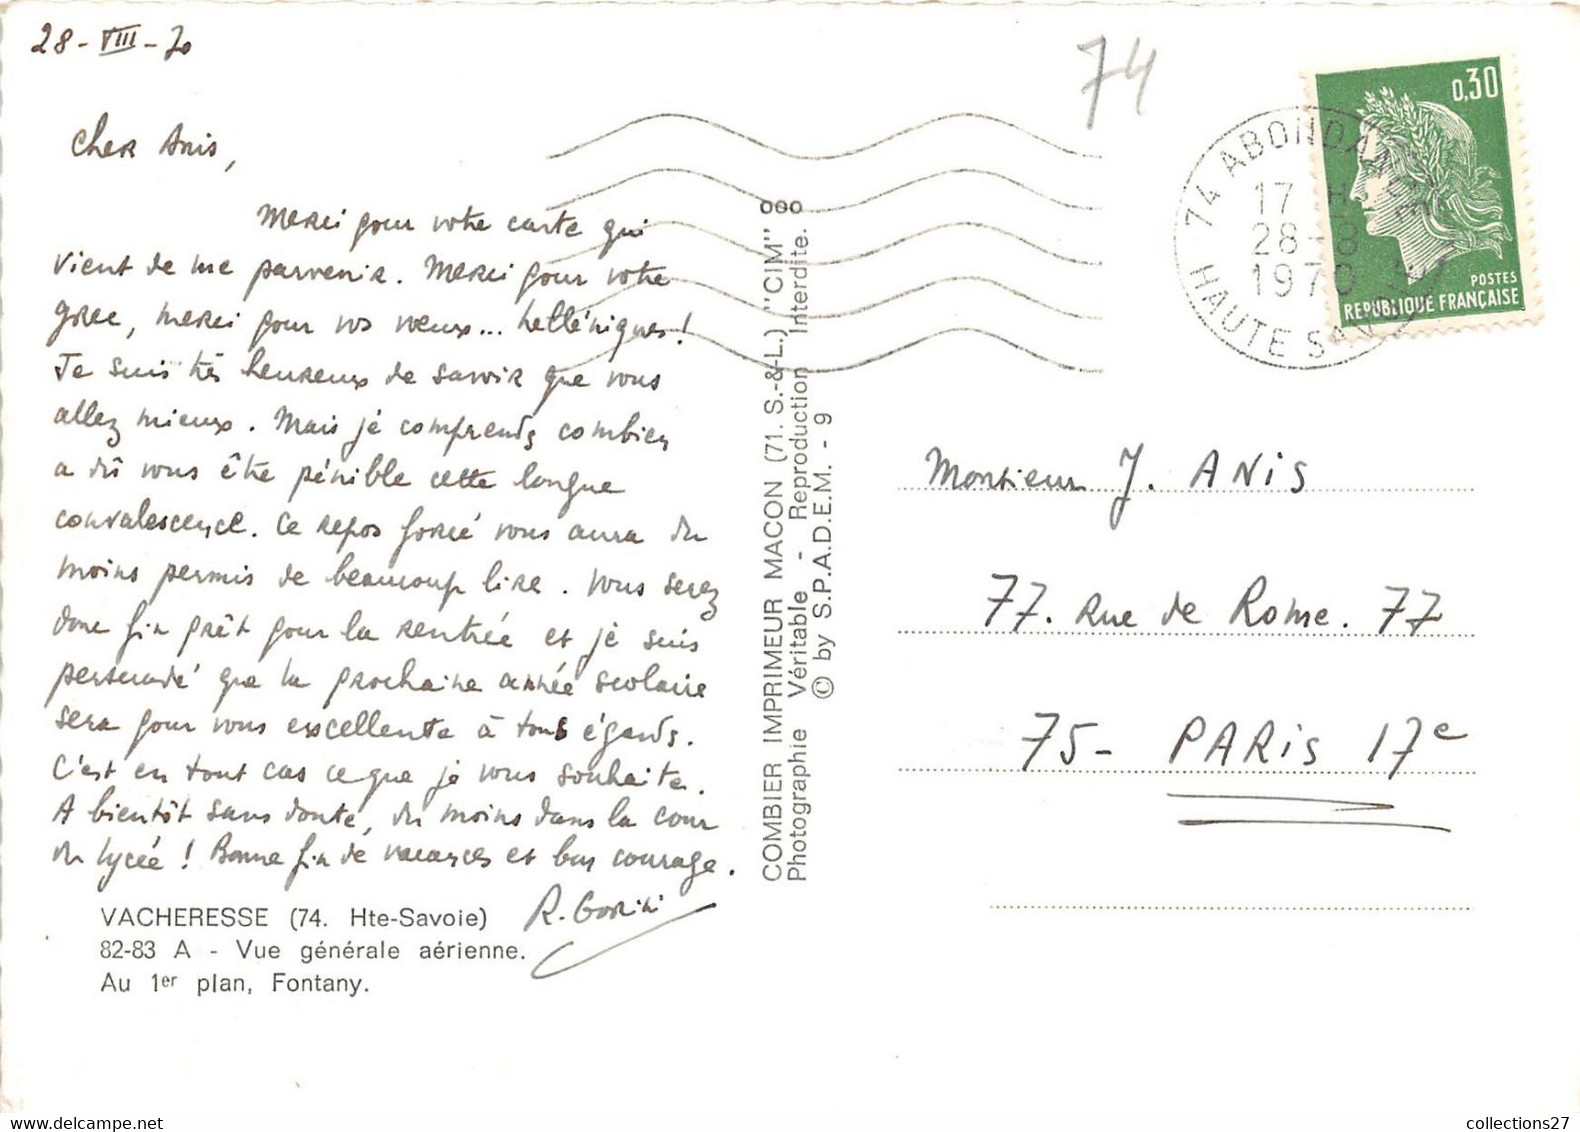 28-VIII-70
74
Cher Anis,
Merci pour votre carte qui
vient de me parvenir. Merci pour votre
grec, merci pour vos voeux... helléniques!
Je suis très heureux de savoir que vous
allez mieux. Mais je comprends combien
a dû vous être pénible cette longue
convalescence. Ce repos forcé vous aura du
moins permis de beaucoup lire. Vous serez
donc fin prêt pour la rentrée et je suis
persuadé que la prochaine année scolaire
sera pour vous excellente à tous égards.
C'est en tout cas ce que je vous souhaite.
A bientôt sans doute, du moins dans la cour
du lycée! Bonne fin de vacances et bon courage.
R. Gorini
VACHERESSE (74. Hte-Savoie)
82-83 A - Vue générale aérienne.
Au 1er plan, Fontany.
COMBIER IMPRIMEUR MACON (71. S.-&-L.) "CIM" ooo
Photographie Véritable - Reproduction Interdite.
© by S.P.A.D.E.M. - 9
0,30
POSTES
REPUBLIQUE FRANÇAISE
74 ABONDANCE
17 H
28-8
1970
HAUTE SAVOIE
Monsieur J. ANIS
77. Rue de Rome. 77
75- PARIS 17e
collections27